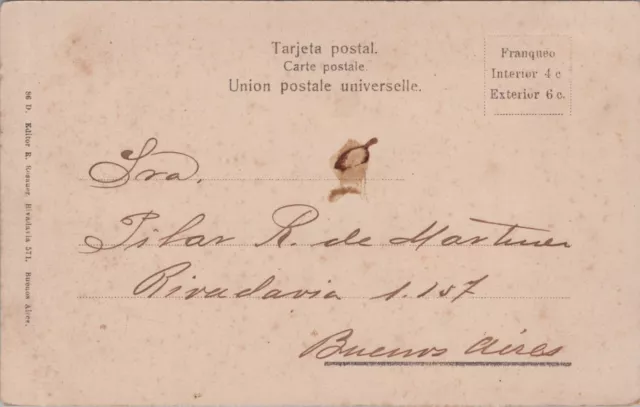 Tarjeta postal.
Carte postale.
Union postale universelle.
Franqueo
Interior 4 c
Exterior 6 c.
Sra.
Pilar R. de Martinez
Rivadavia 1.157
Buenos Aires
86 D. Editor R. Rosauer, Rivadavia 571, Buenos Aires.